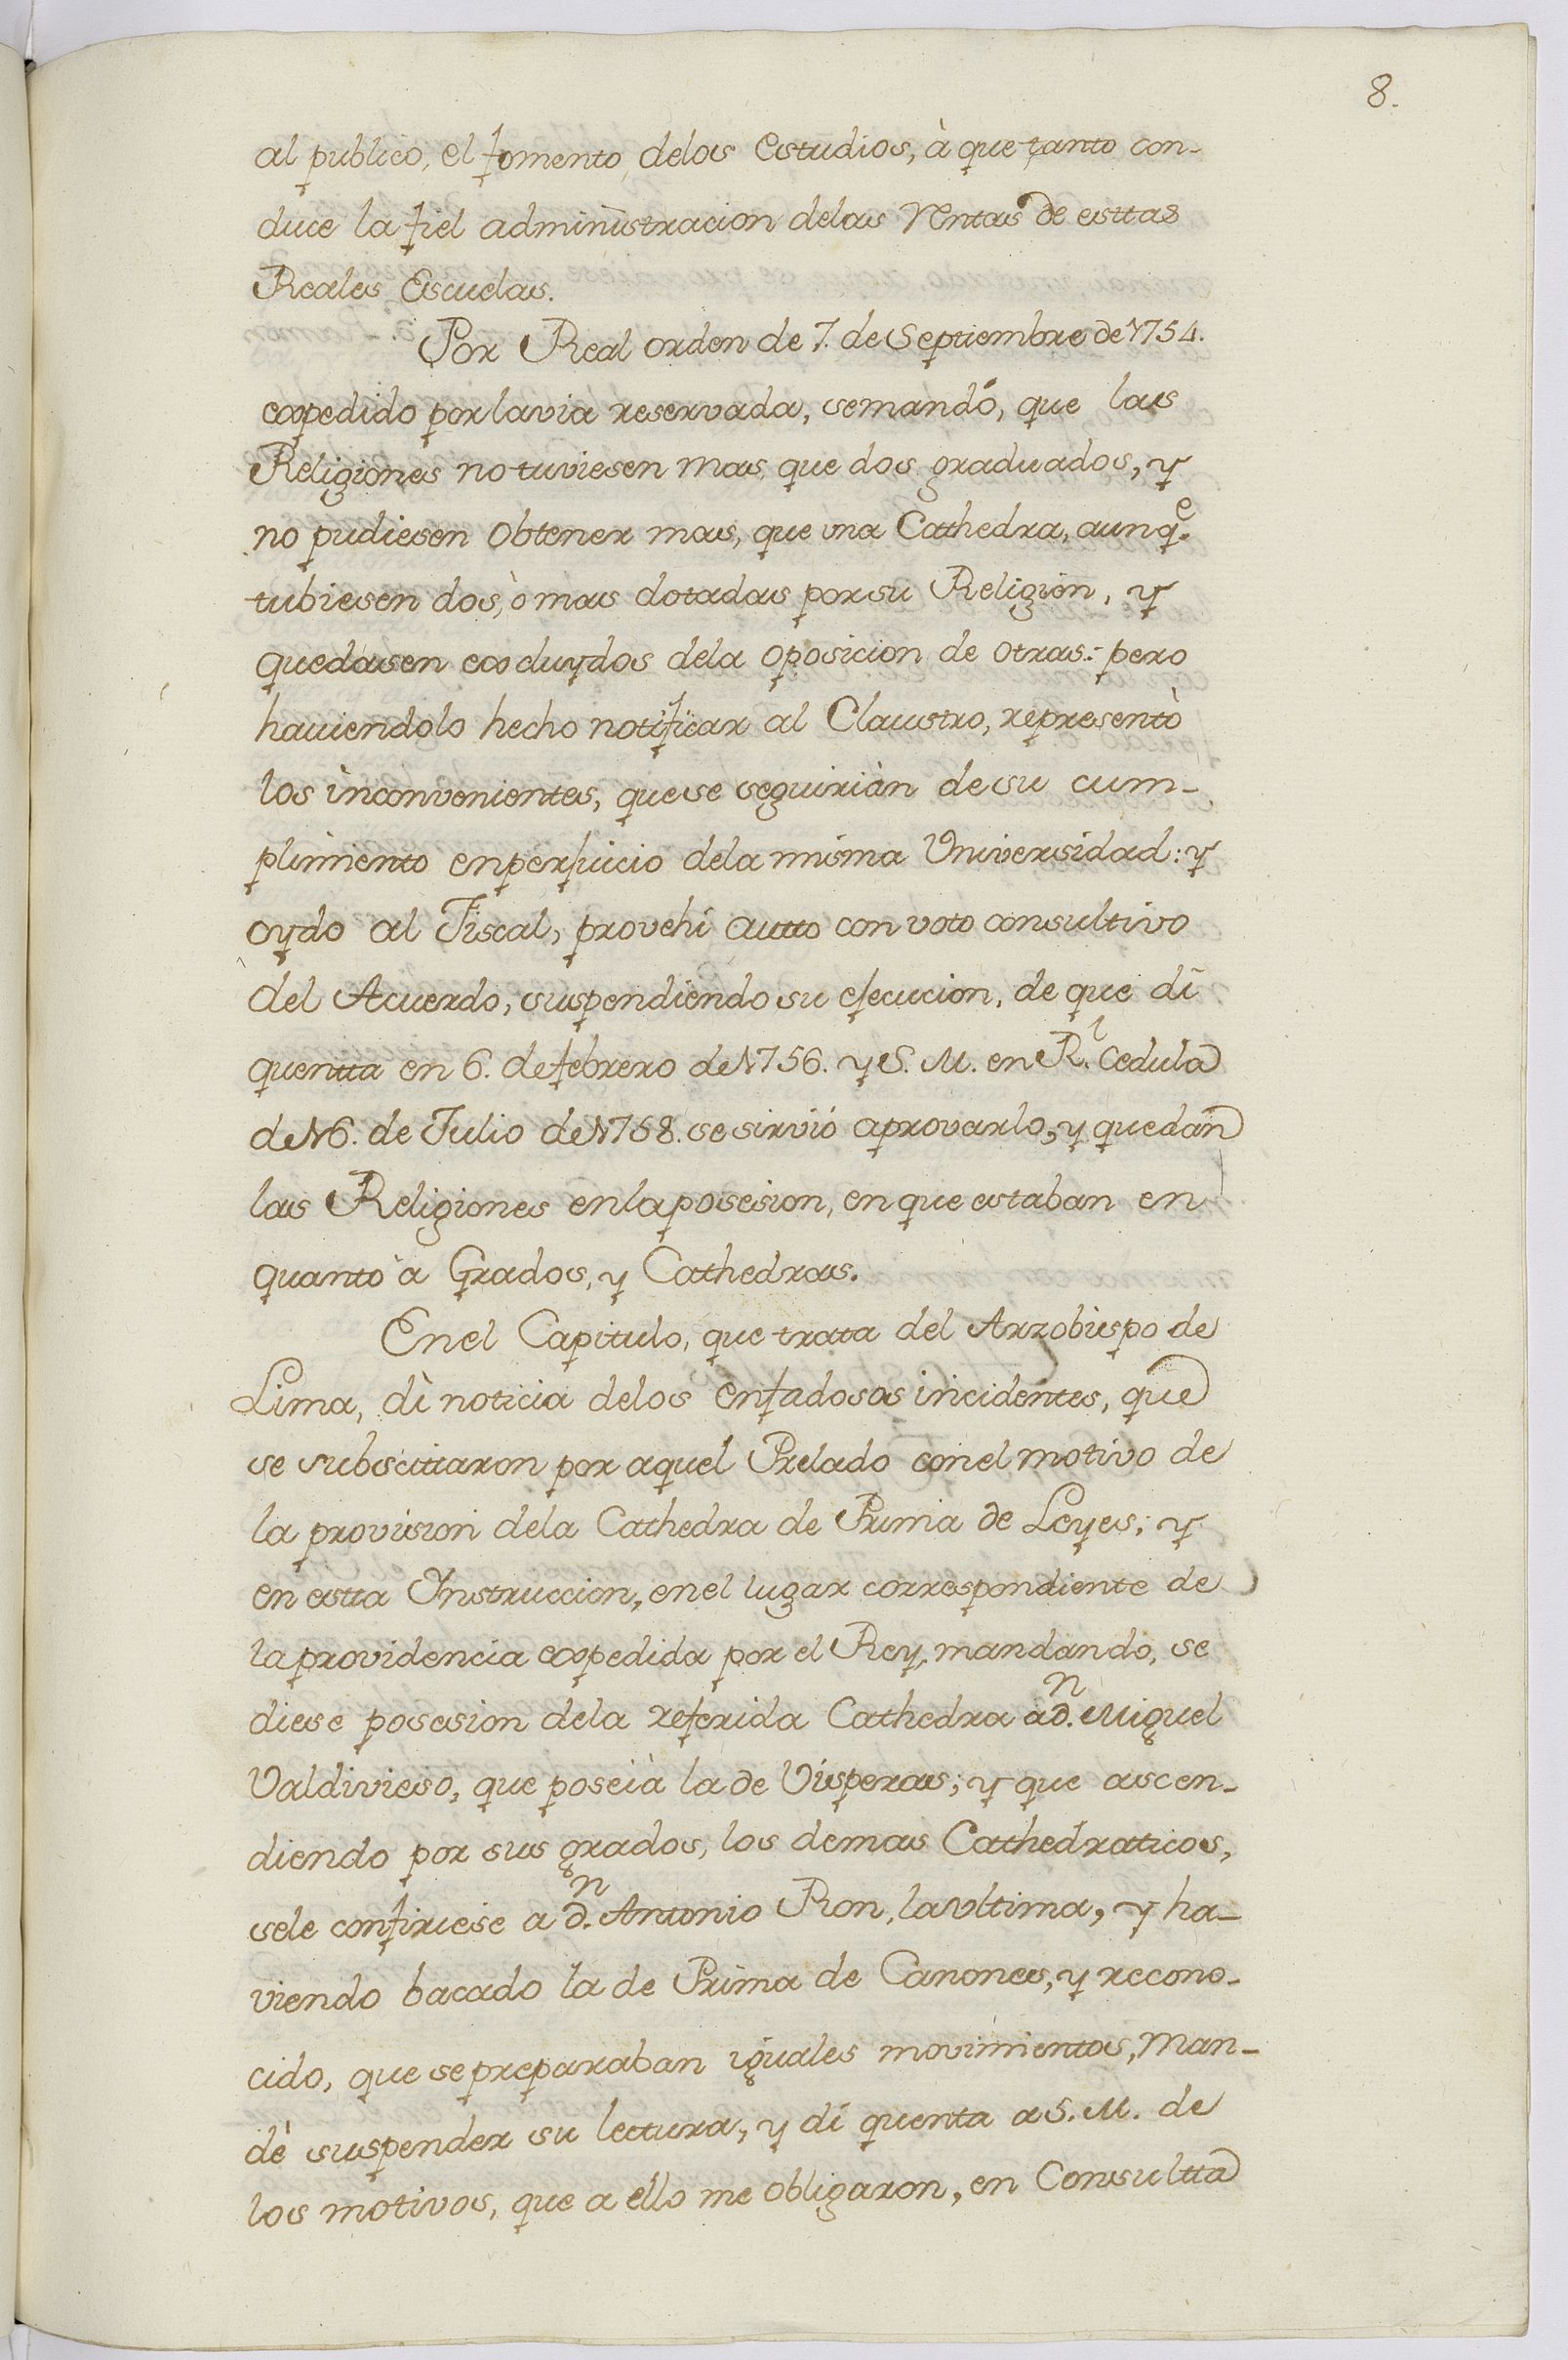 8.
al publico, el fomento delos Estudios, à que tanto con-
duce la fiel administracion delas Rentas de esttas
Reales Escuelas.
Por Real orden de 7. de Septiembre de 1754.
expedido por lavia reservada, semandó, que las
Religiones no tuviesen mas, que dos graduados, y
no pudiesen obtener mas, que una Cathedra, aunq.e
tubiesen dos, ò mas dotadas por su Religion, y
quedasen excluydos dela oposicion de otras: pero
haviendolo hecho notificar al Claustro, representò
los inconvenientes, que se seguiriàn de su cum-
plimiento en perjuicio dela misma Universidad: y
oydo al Fiscal, provehi autto con voto consultivo
del Acuerdo, suspendiendo su ejecucion, de que dì
quentta en 6. de febrero de 1756. y S. M. en R.l Cedula
de 16. de Julio de 1758. se sirvió aprovarlo, y quedan
las Religiones en la posesion, en que estaban en
quanto à Grados, y Cathedras.
En el Capitulo, que trata del Arzobispo de
Lima, dì noticia delos enfadosos incidentes, que
se subscitaron por aquel Prelado con el motivo de
la provision dela Cathedra de Prima de Leyes; y
en estta Ynstruccion, en el lugar correspondiente de
la providencia expedida por el Rey, mandando, se
diese posesion dela referida Cathedra a d.n Miguel
Valdivieso, que poseià la de Visperas; y que ascen-
diendo por sus grados, los demas Cathedraticos,
sele confiriese a d.n Antonio Ron, la ultima, y ha-
viendo bacado la de Prima de Canones, y recono-
cido, que se preparaban iguales movimientos, man-
dè suspender su lecttura, y di quenta a S. M. de
los motivos, que a ello me obligaron, en Consultta